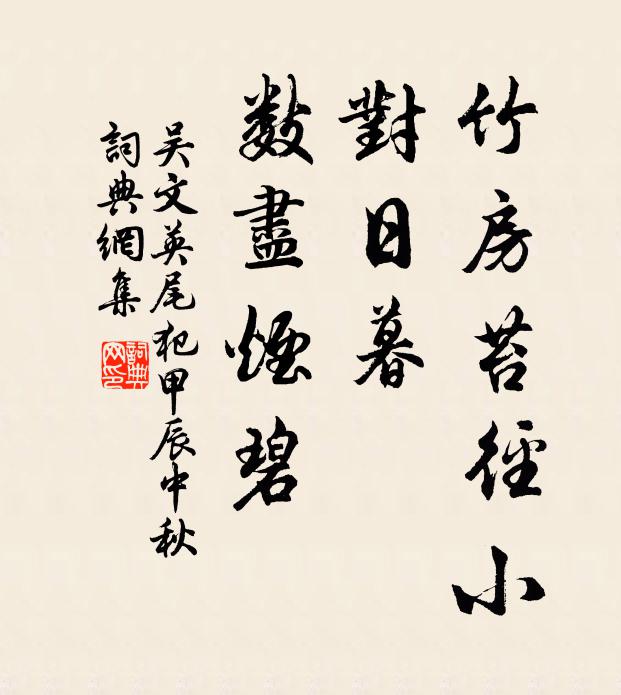 竹房苔徑小
對日暮
數盡煙碧
吴文英尾犯甲辰中秋
詞典網集
詞典网印